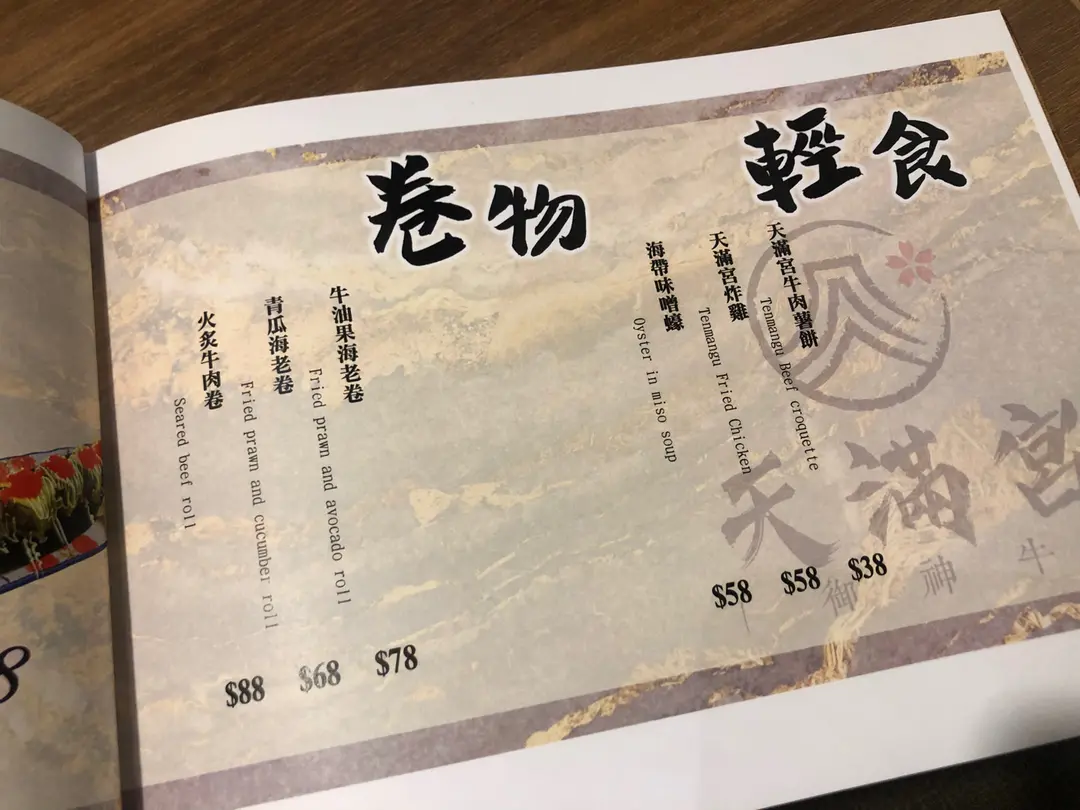 輕食
天滿宮牛肉薯餅
Tenmangu Beef croquette
$38
天滿宮炸雞
Tenmangu Fried Chicken
$58
海帶味噌蠔
Oyster in miso soup
$58
卷物
牛油果海老卷
Fried prawn and avocado roll
$78
青瓜海老卷
Fried prawn and cucumber roll
$68
火炙牛肉卷
Seared beef roll
$88
天滿宮
御神牛
8